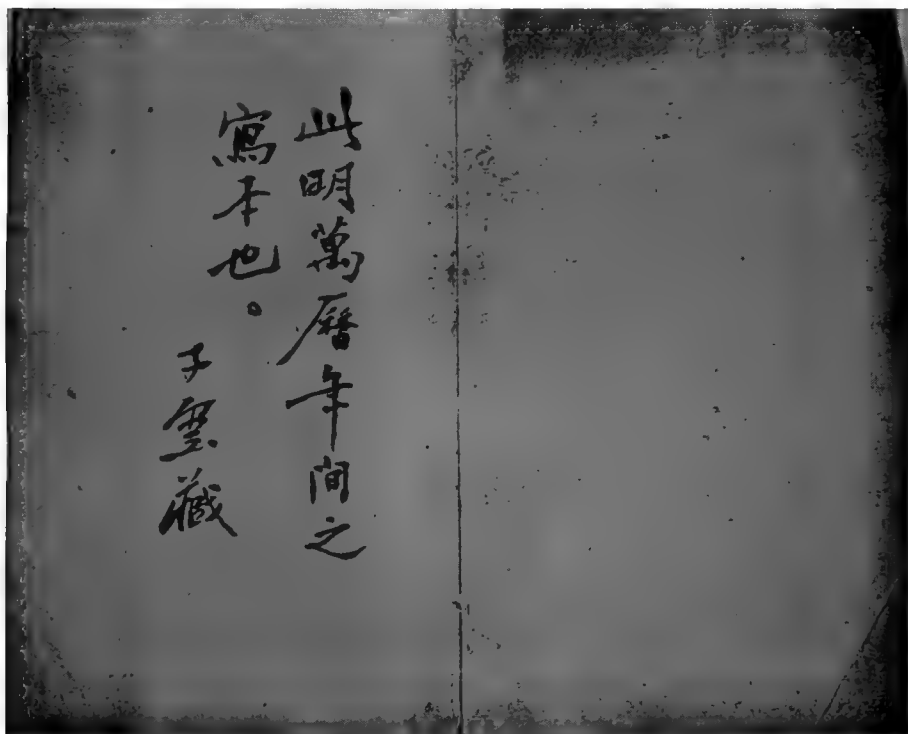 此明萬曆年間之
寫本也。
子雲藏